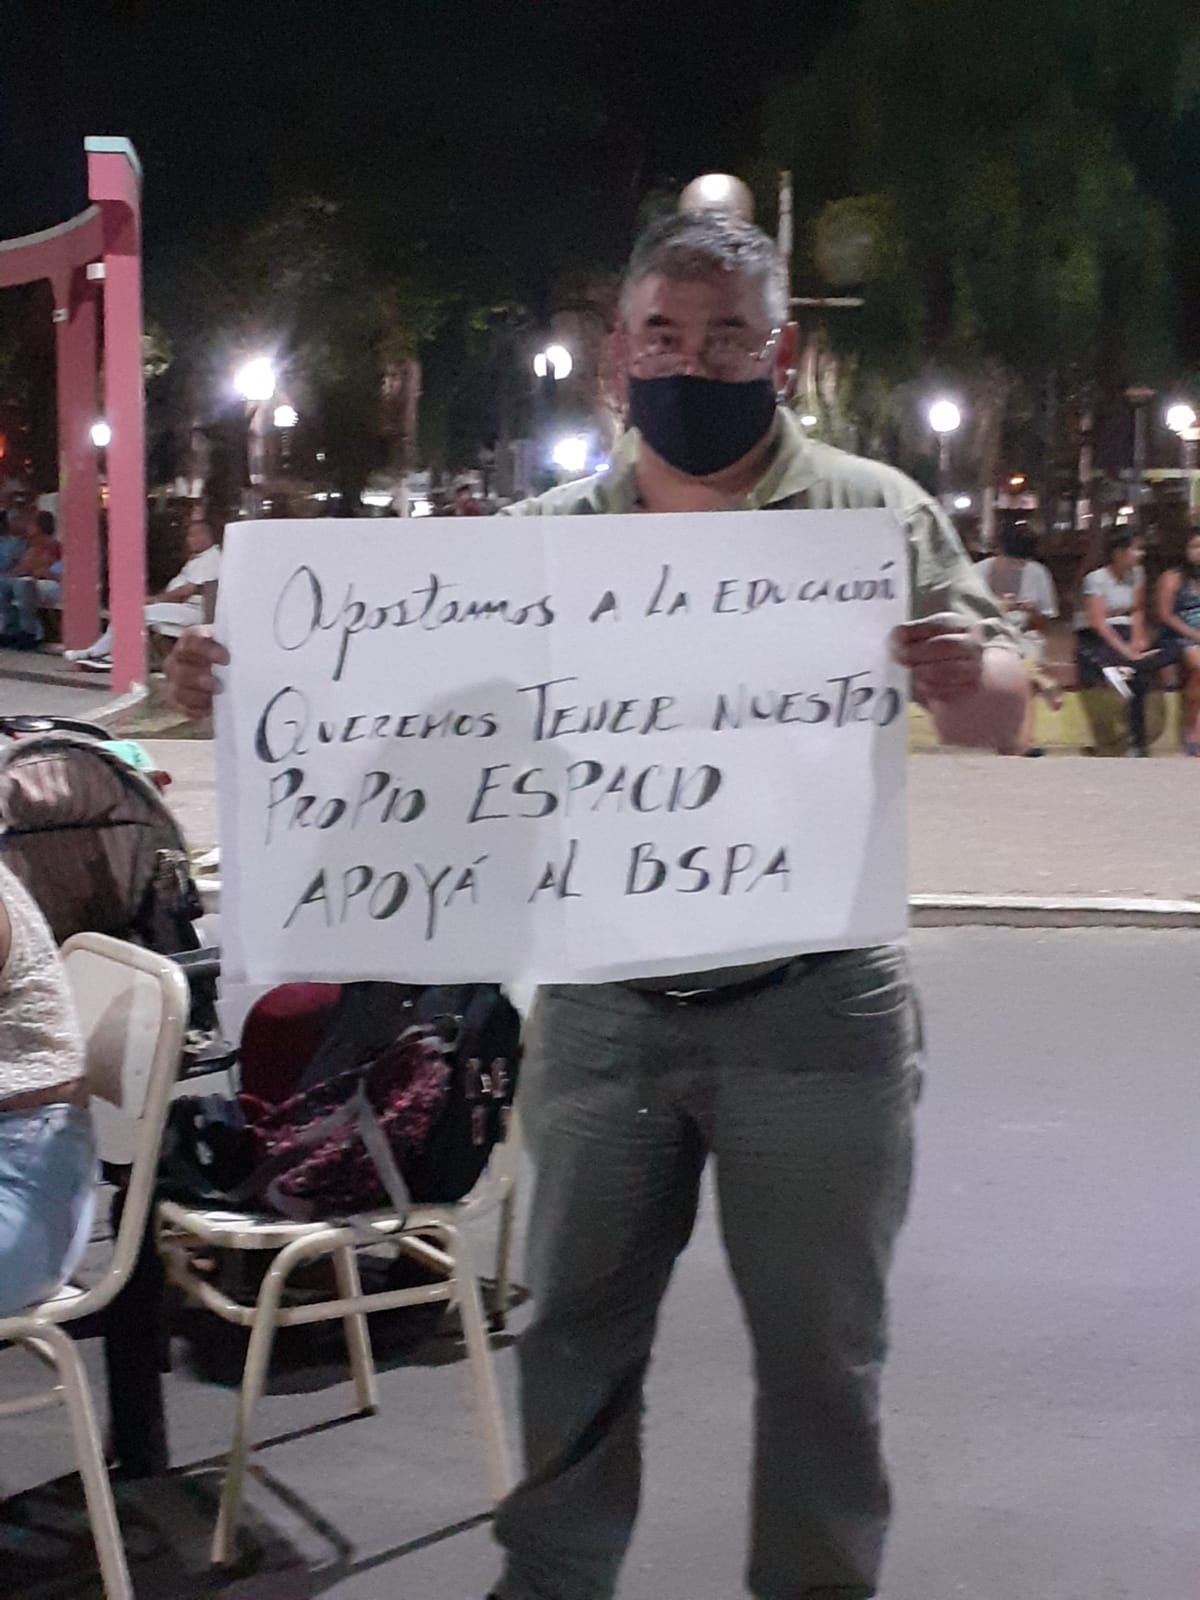 Apostamos A LA EDUCACIÓN
QUEREMOS TENER NUESTRO
PROPIO ESPACIO
APOYÁ AL BSPA